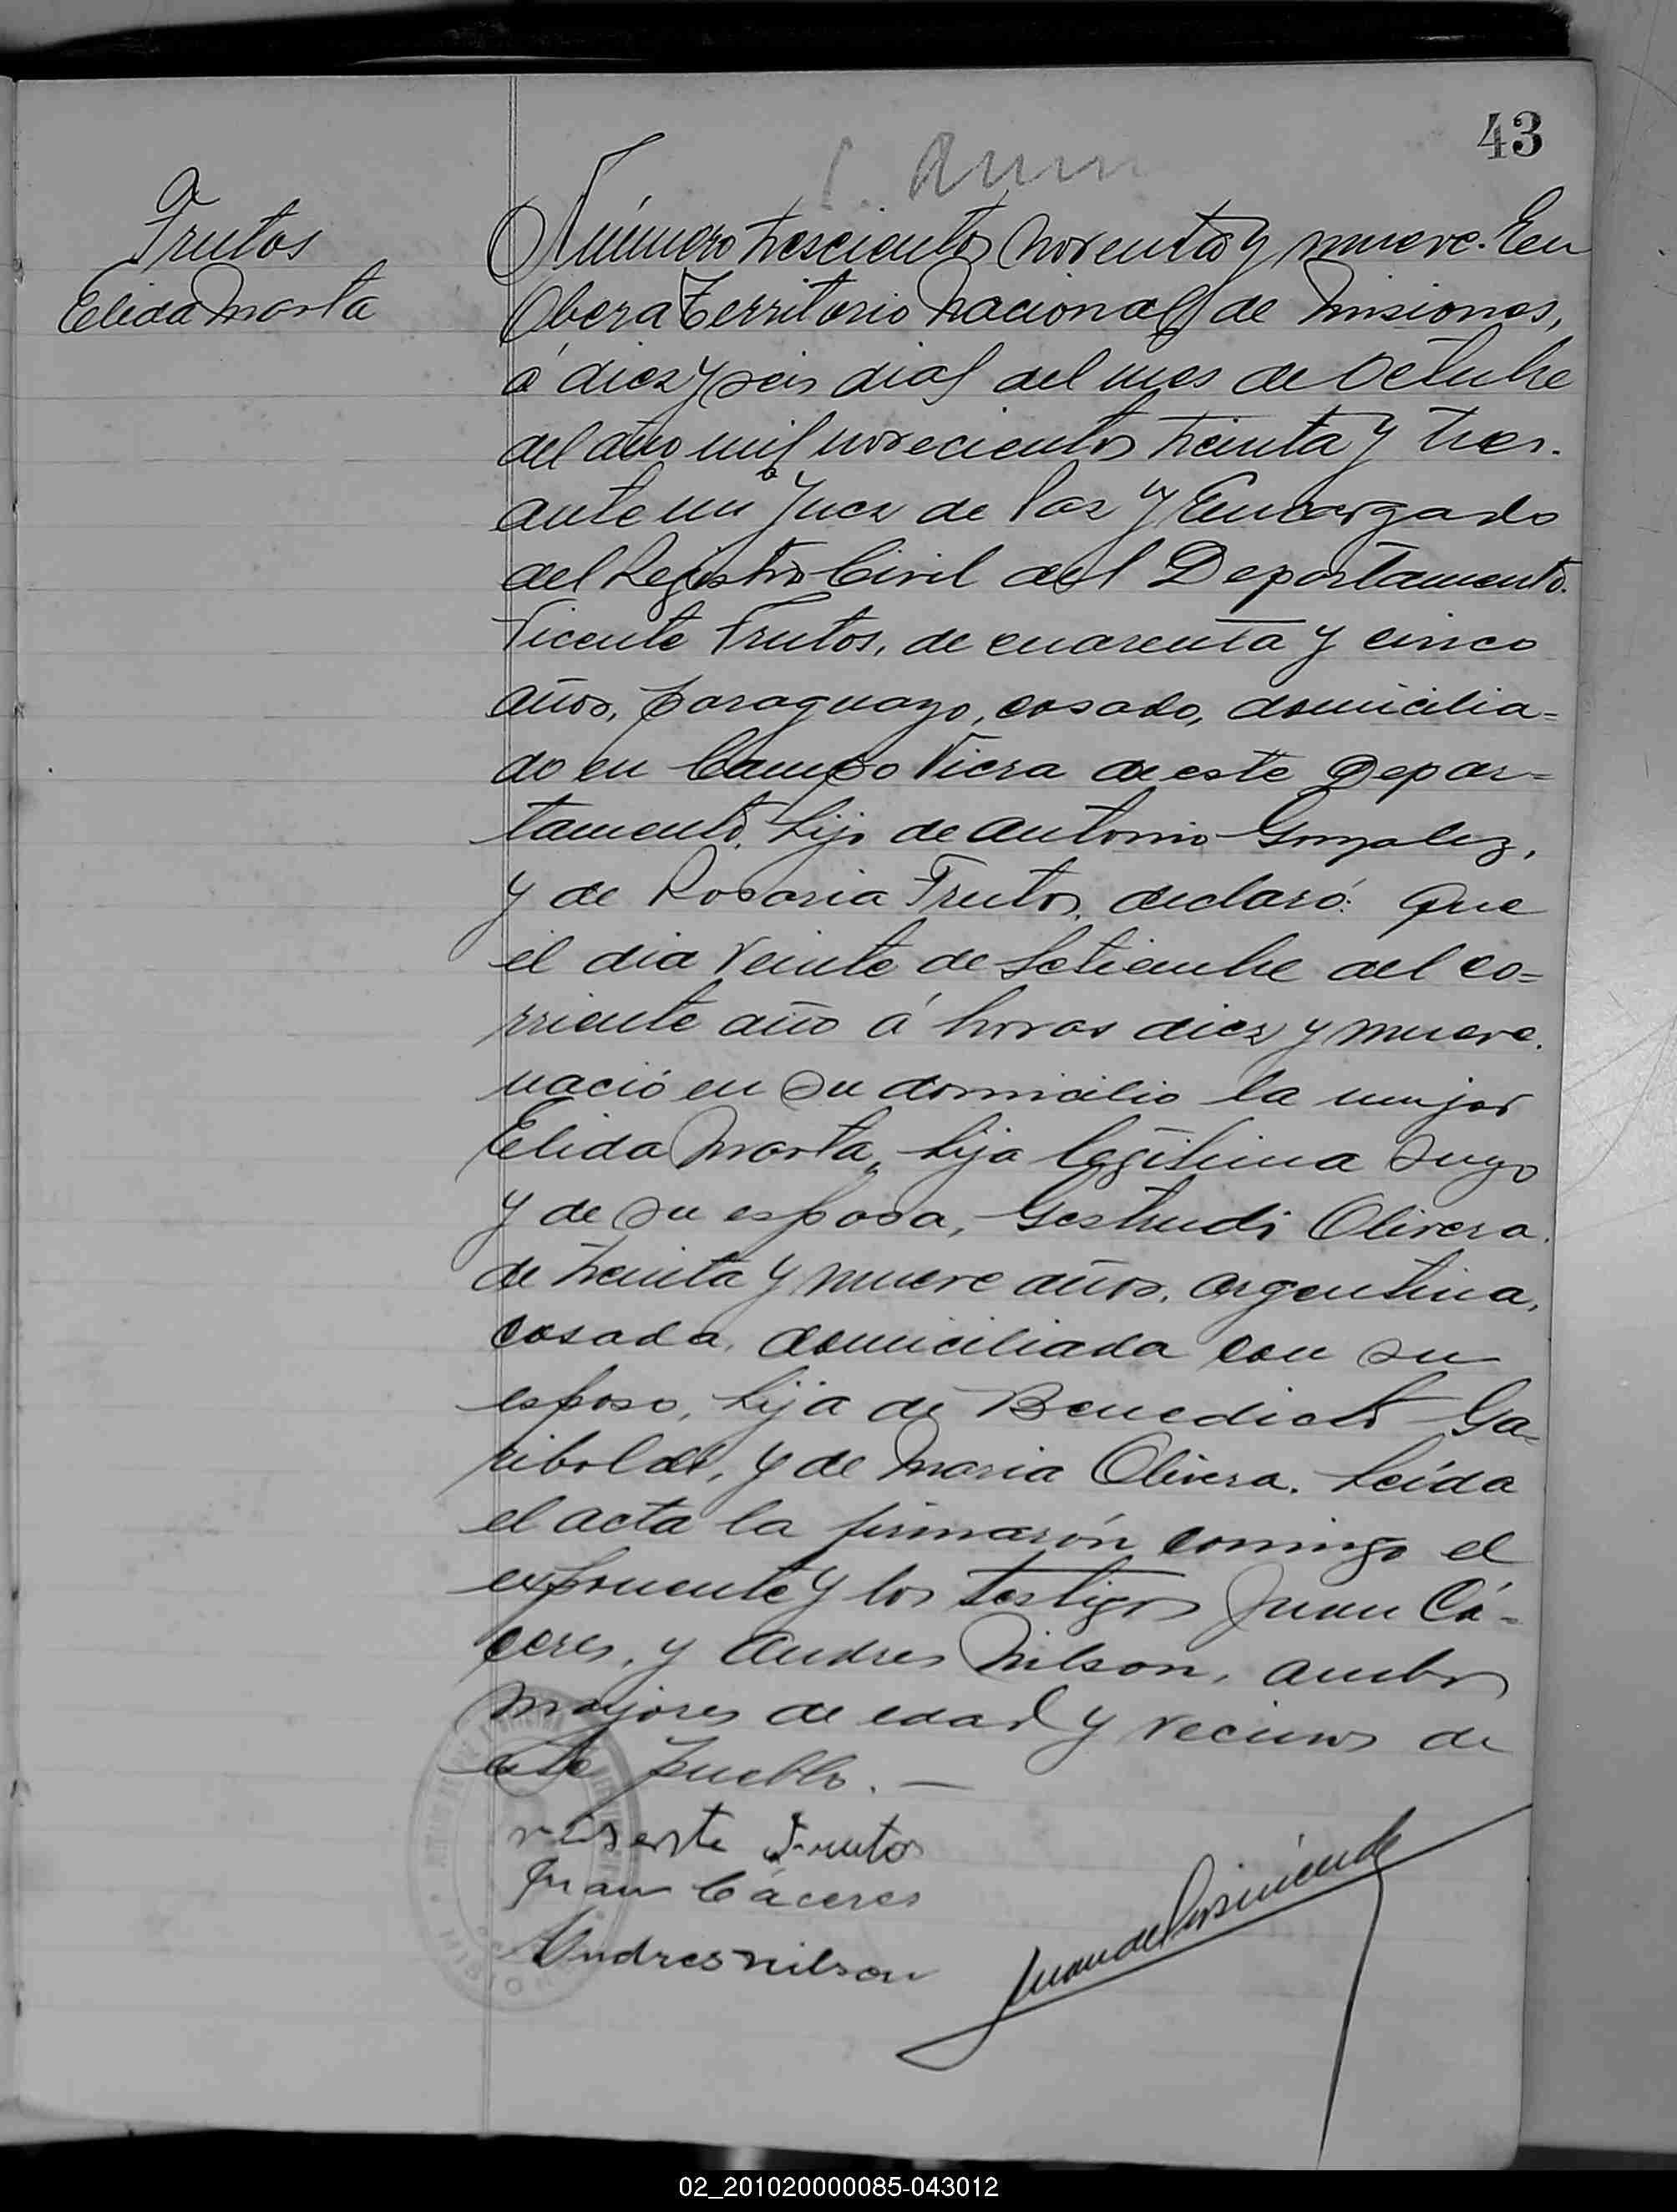 43
Frutos
Elida Marta
Número trescientos noventa y nueve. En
Obera Territorio Nacional de Misiones,
á diez y seis dias del mes de Octubre
del año mil novecientos treinta y tres.
ante mi Juez de Paz y Encargado
del Registro Civil del Departamento.
Vicente Frutos, de cuarenta y cinco
años, paraguayo, casado, domicilia=
do en Campo Viera de este Depar=
tamento, hijo de Antonio Gonzalez,
y de Rosaria Frutos, declaró: Que
el dia veinte de Setiembre del co=
rriente año á horas diez y nueve.
nació en su domicilio la mujer
Elida Marta, hija legitima suya
y de su esposa, Gertrudi Olivera.
de treinta y nueve años, argentina,
casada, domiciliada con su
esposo, hija de Benedicto Ga-
ribaldi, y de Maria Olivera. Leída
el acta la firmarón conmigo el
exponente y los testigos Juan Cá-
ceres, y Andres Nilson, ambos
mayores de edad y vecinos de
este pueblo. —
Viserte Frutos
Juan Cáceres
Andres nilson
02_201020000085-043012